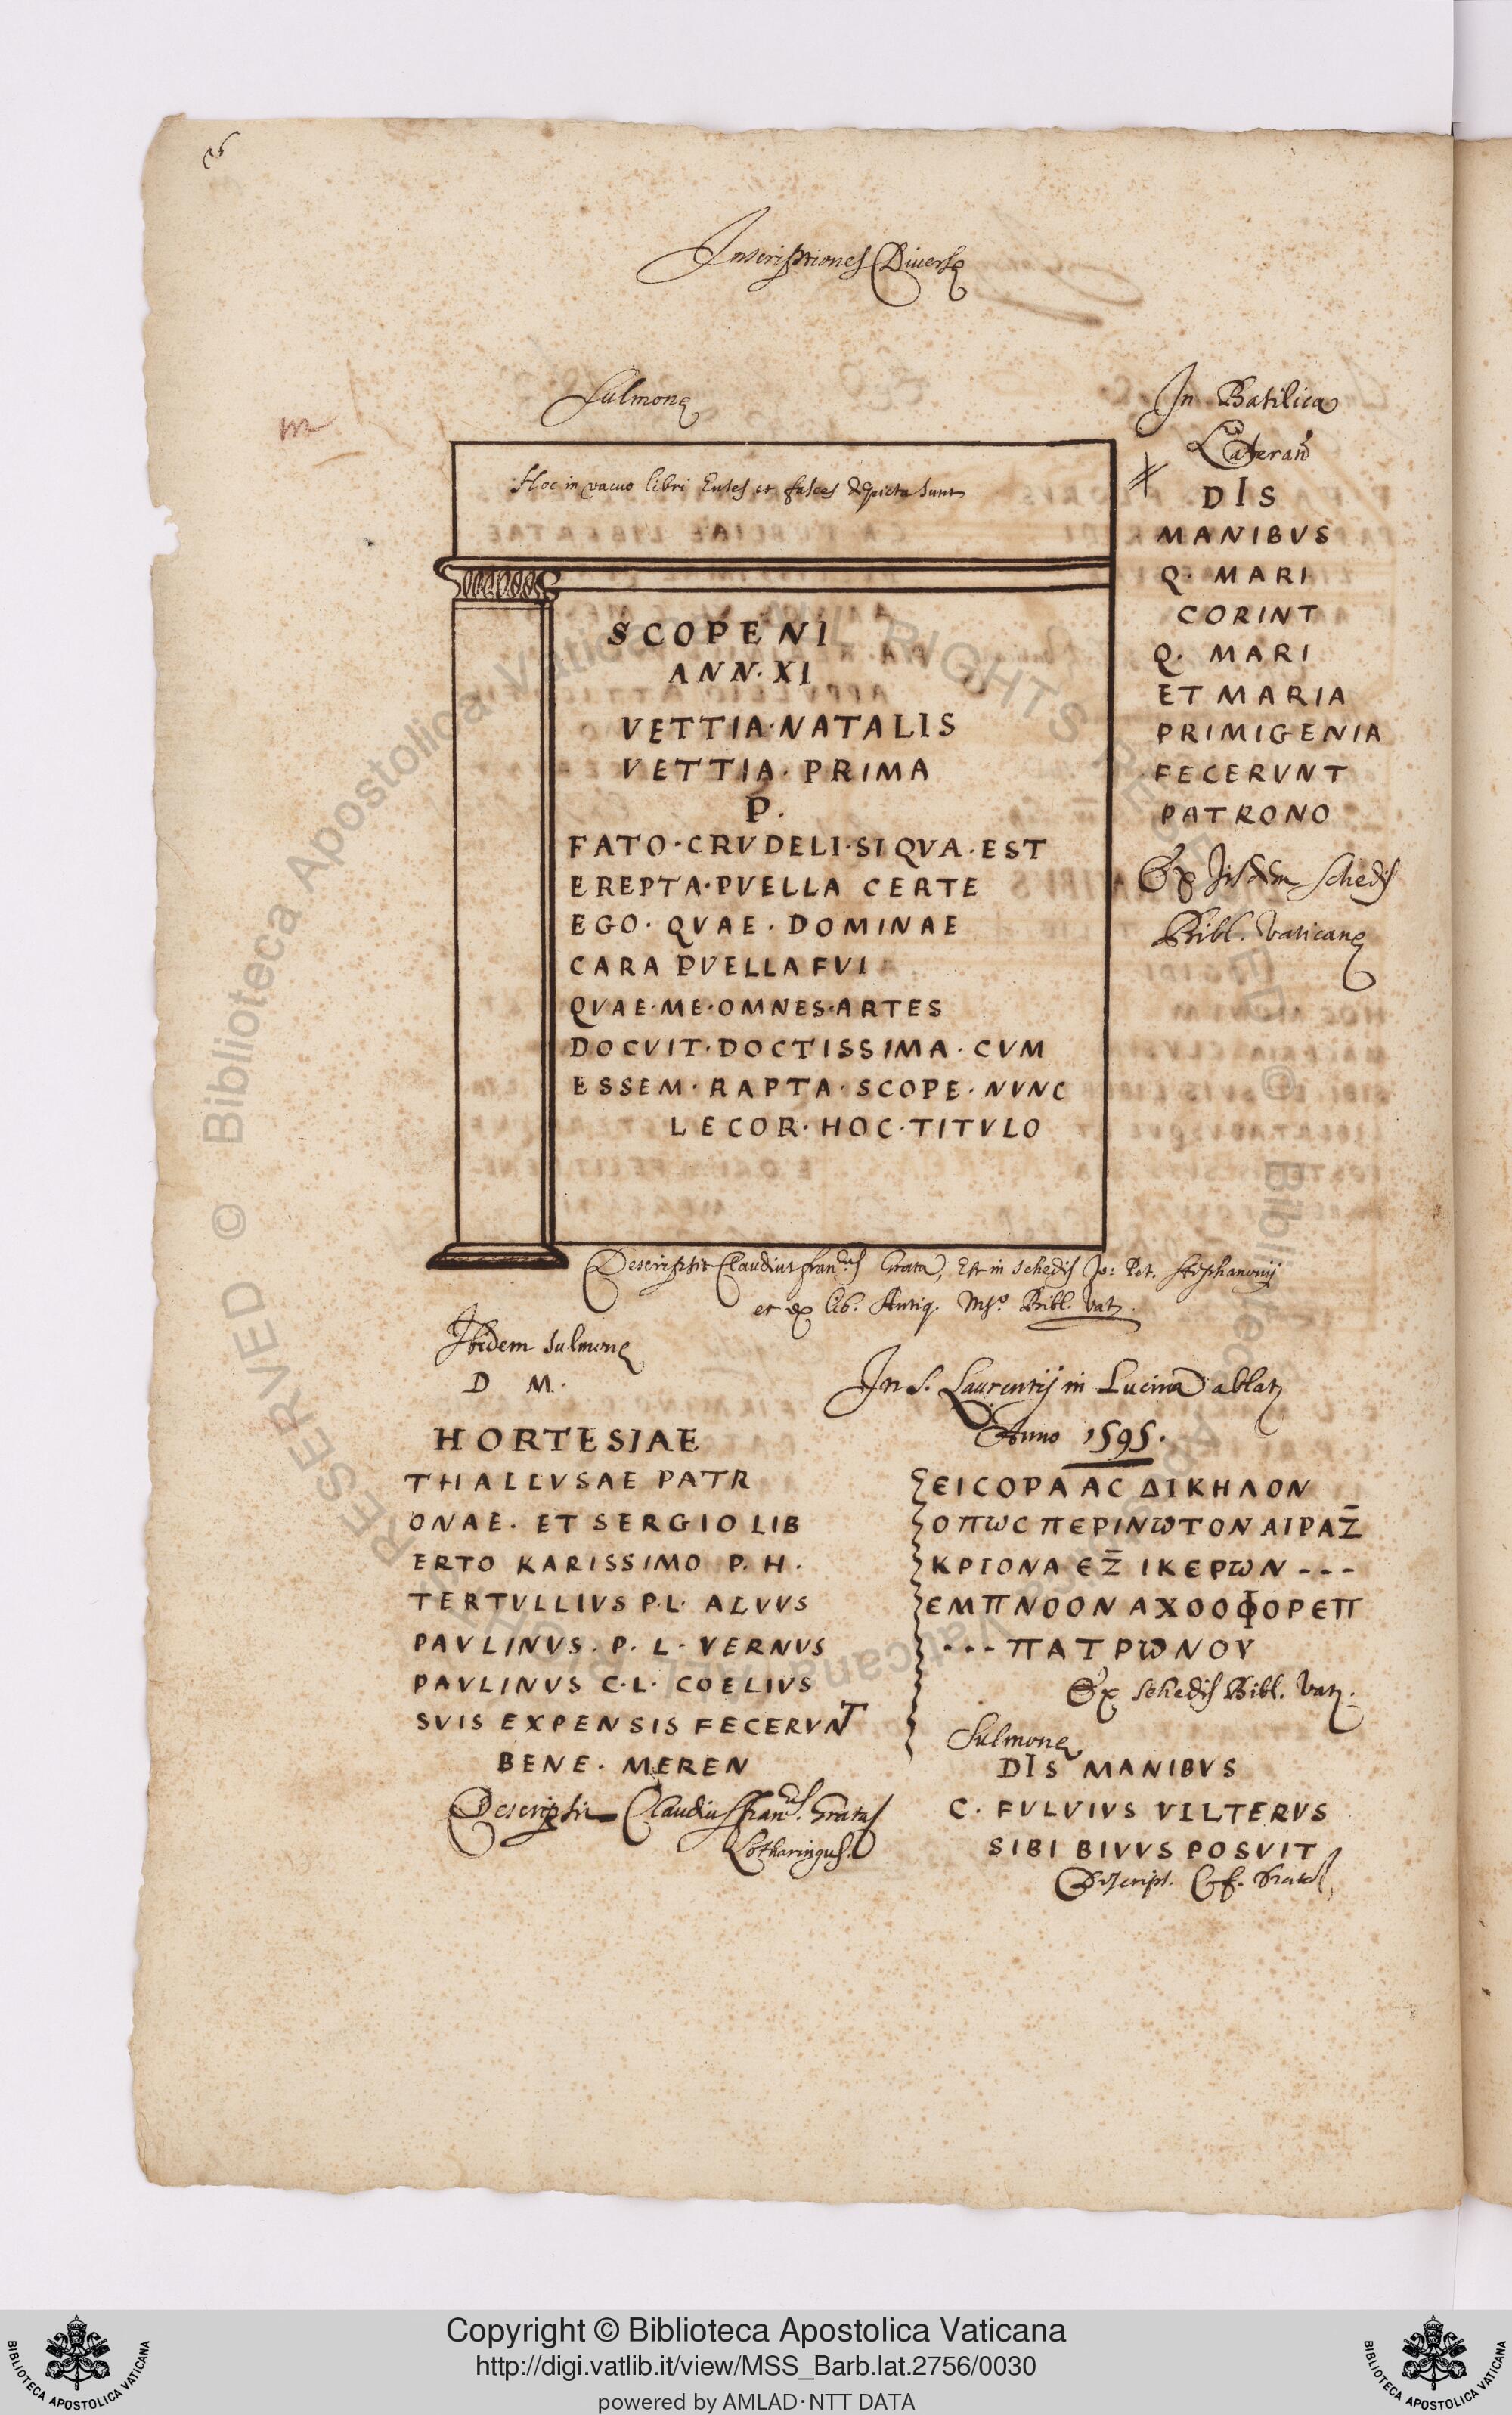 Inscriptiones Diversę
Sulmonę
Hoc in vacuo libri Enses et fasces depicta sunt
SCOPENI
ANN·XI
VETTIA·NATALIS
VETTIA·PRIMA
P.
FATO·CRVDELI·SI QVA·EST
EREPTA·PVELLA CERTE
EGO·QVAE·DOMINAE
CARA PVELLA FVI
QVAE·ME·OMNES·ARTES
DOCVIT·DOCTISSIMA·CVM
ESSEM·RAPTA·SCOPE·NVNC
LECOR·HOC·TITVLO
Descripsit Claudius Fran.us Grata, Est in schedis Jo: Pet. Stephanonij
et ex lib. Antiq. Ms.o Bibl. Vat.
In Basilica
Lateran
DIS
MANIBVS
Q. MARI
CORINT
Q. MARI
ET MARIA
PRIMIGENIA
FECERVNT
PATRONO
Ex Jisdem schedis
Bibl. Vaticanę
Ibidem Sulmonę
D M.
HORTESIAE
THALLVSAE PATR
ONAE. ET SERGIO LIB
ERTO KARISSIMO P. H.
TERTVLLIVS P.L. ALVVS
PAVLINVS. P. L. VERNVS
PAVLINVS C.L. COELIVS
SVIS EXPENSIS FECERVNT
BENE. MEREN
Descripsit Claudius Fran.us Gratus
Lotharingus.
In S. Laurentij in Lucina ablat
Anno 1595.
ЄΙCΟΡΑ ΑC ΔΙΚΗΛΟΝ
ΟΠωC ΠЄΡΙΝωΤΟΝ ΑΙΡΑΖ̄
ΚΡΙΟΝΑ ЄΖ̄ ΙΚЄΡωΝ ---
ЄΜΠΝΟΟΝ ΑΧΟΟΦΟΡЄΠ
---ΠΑΤΡωΝΟΥ
Ex schedis Bibl. Vat.
Sulmonę
DIS MANIBVS
C. FVLVIVS VILTERVS
SIBI BIVVS POSVIT
Descript. C. f. Gratus
Copyright © Biblioteca Apostolica Vaticana
http://digi.vatlib.it/view/MSS_Barb.lat.2756/0030
powered by AMLAD·NTT DATA
BIBLIOTECA APOSTOLICA VATICANA
BIBLIOTECA APOSTOLICA VATICANA